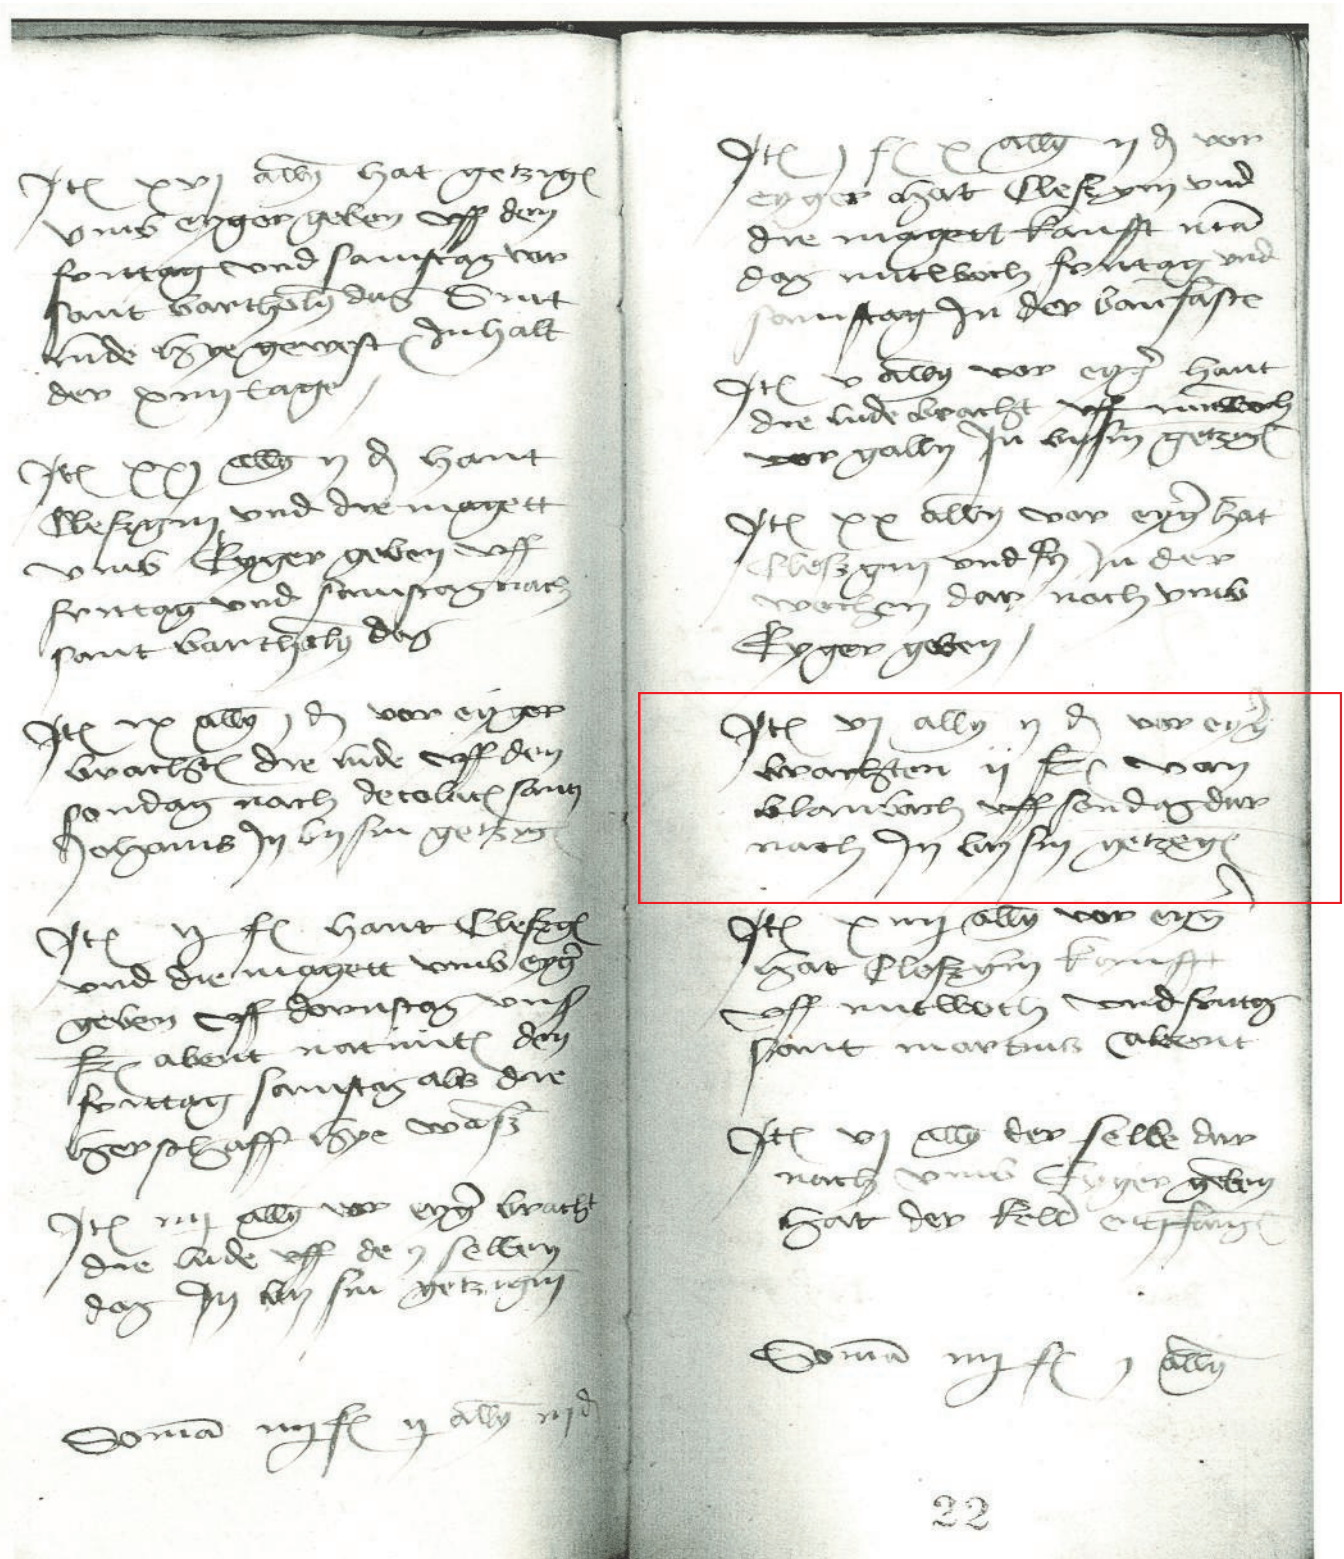 Itē xvj albꝯ hat getzigē
vmb eyger geben vff den
frytag vnd samstag vor
sant bartholꝯ dag Sint
lude hye gewest Inhalt
der xiiij tage
Itē xxj albꝯ ij d hant
Cleszgin vnd die magett
vmb Eyger geben vff
frytag vnd samstag nach
sant bartholꝯ dag
Itē ix albꝯ j d vor eyger
brachtē die lude vff den
sondag nach decolacē sant
Johans In by sin getzigē
Itē ij fl hant Cleszgē
vnd die magett vmb eyg
geben vff dornstag vns
f abent natiuitē den
frytag samstag als die
herschafft hye wasz
Itē iiij albꝯ vor eyg bracht
die lude vff den selben
dag In by sin getzigin
Somā iiij fl ij albꝯ iij d
Itē j fl x albꝯ ij d vor
eyger hat Cleszgin vnd
die magett kaufft mā
dag mitwoch frytag vnd
samstag In der banfaste
Itē v albꝯ vor eyg hant
die lude bracht vff mitwoch
vor gally In by sin getzigē
Itē xx albꝯ vor eyg hat
Cleszgin vnd In der
wochen dar nach vmb
Eyger geben
Itē vj albꝯ ij d vor eyg
brachten ij von
blambach vff sondag dar
nach In by sin getzegē
Itē xiiij albꝯ vor eyg
hat Cleszgin kaufft
vff mitwoch vnd frytag
sant martins abent
Itē vj albꝯ der selbe dar
nach vmb Eyger geben
hat der kell entpfangē
Somā iiij fl j albꝯ
22